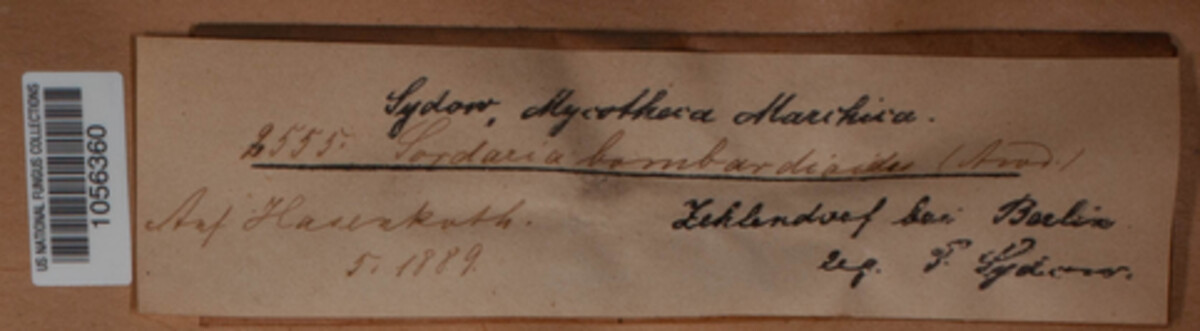 US NATIONAL FUNGUS COLLECTIONS
10563​60
Sydow, Mycotheca Marchica.
2555. Sordaria bombardioides (Awd.)
Auf Hasenkoth.
5. 1889.
Zehlendorf bei Berlin
leg. P. Sydow.